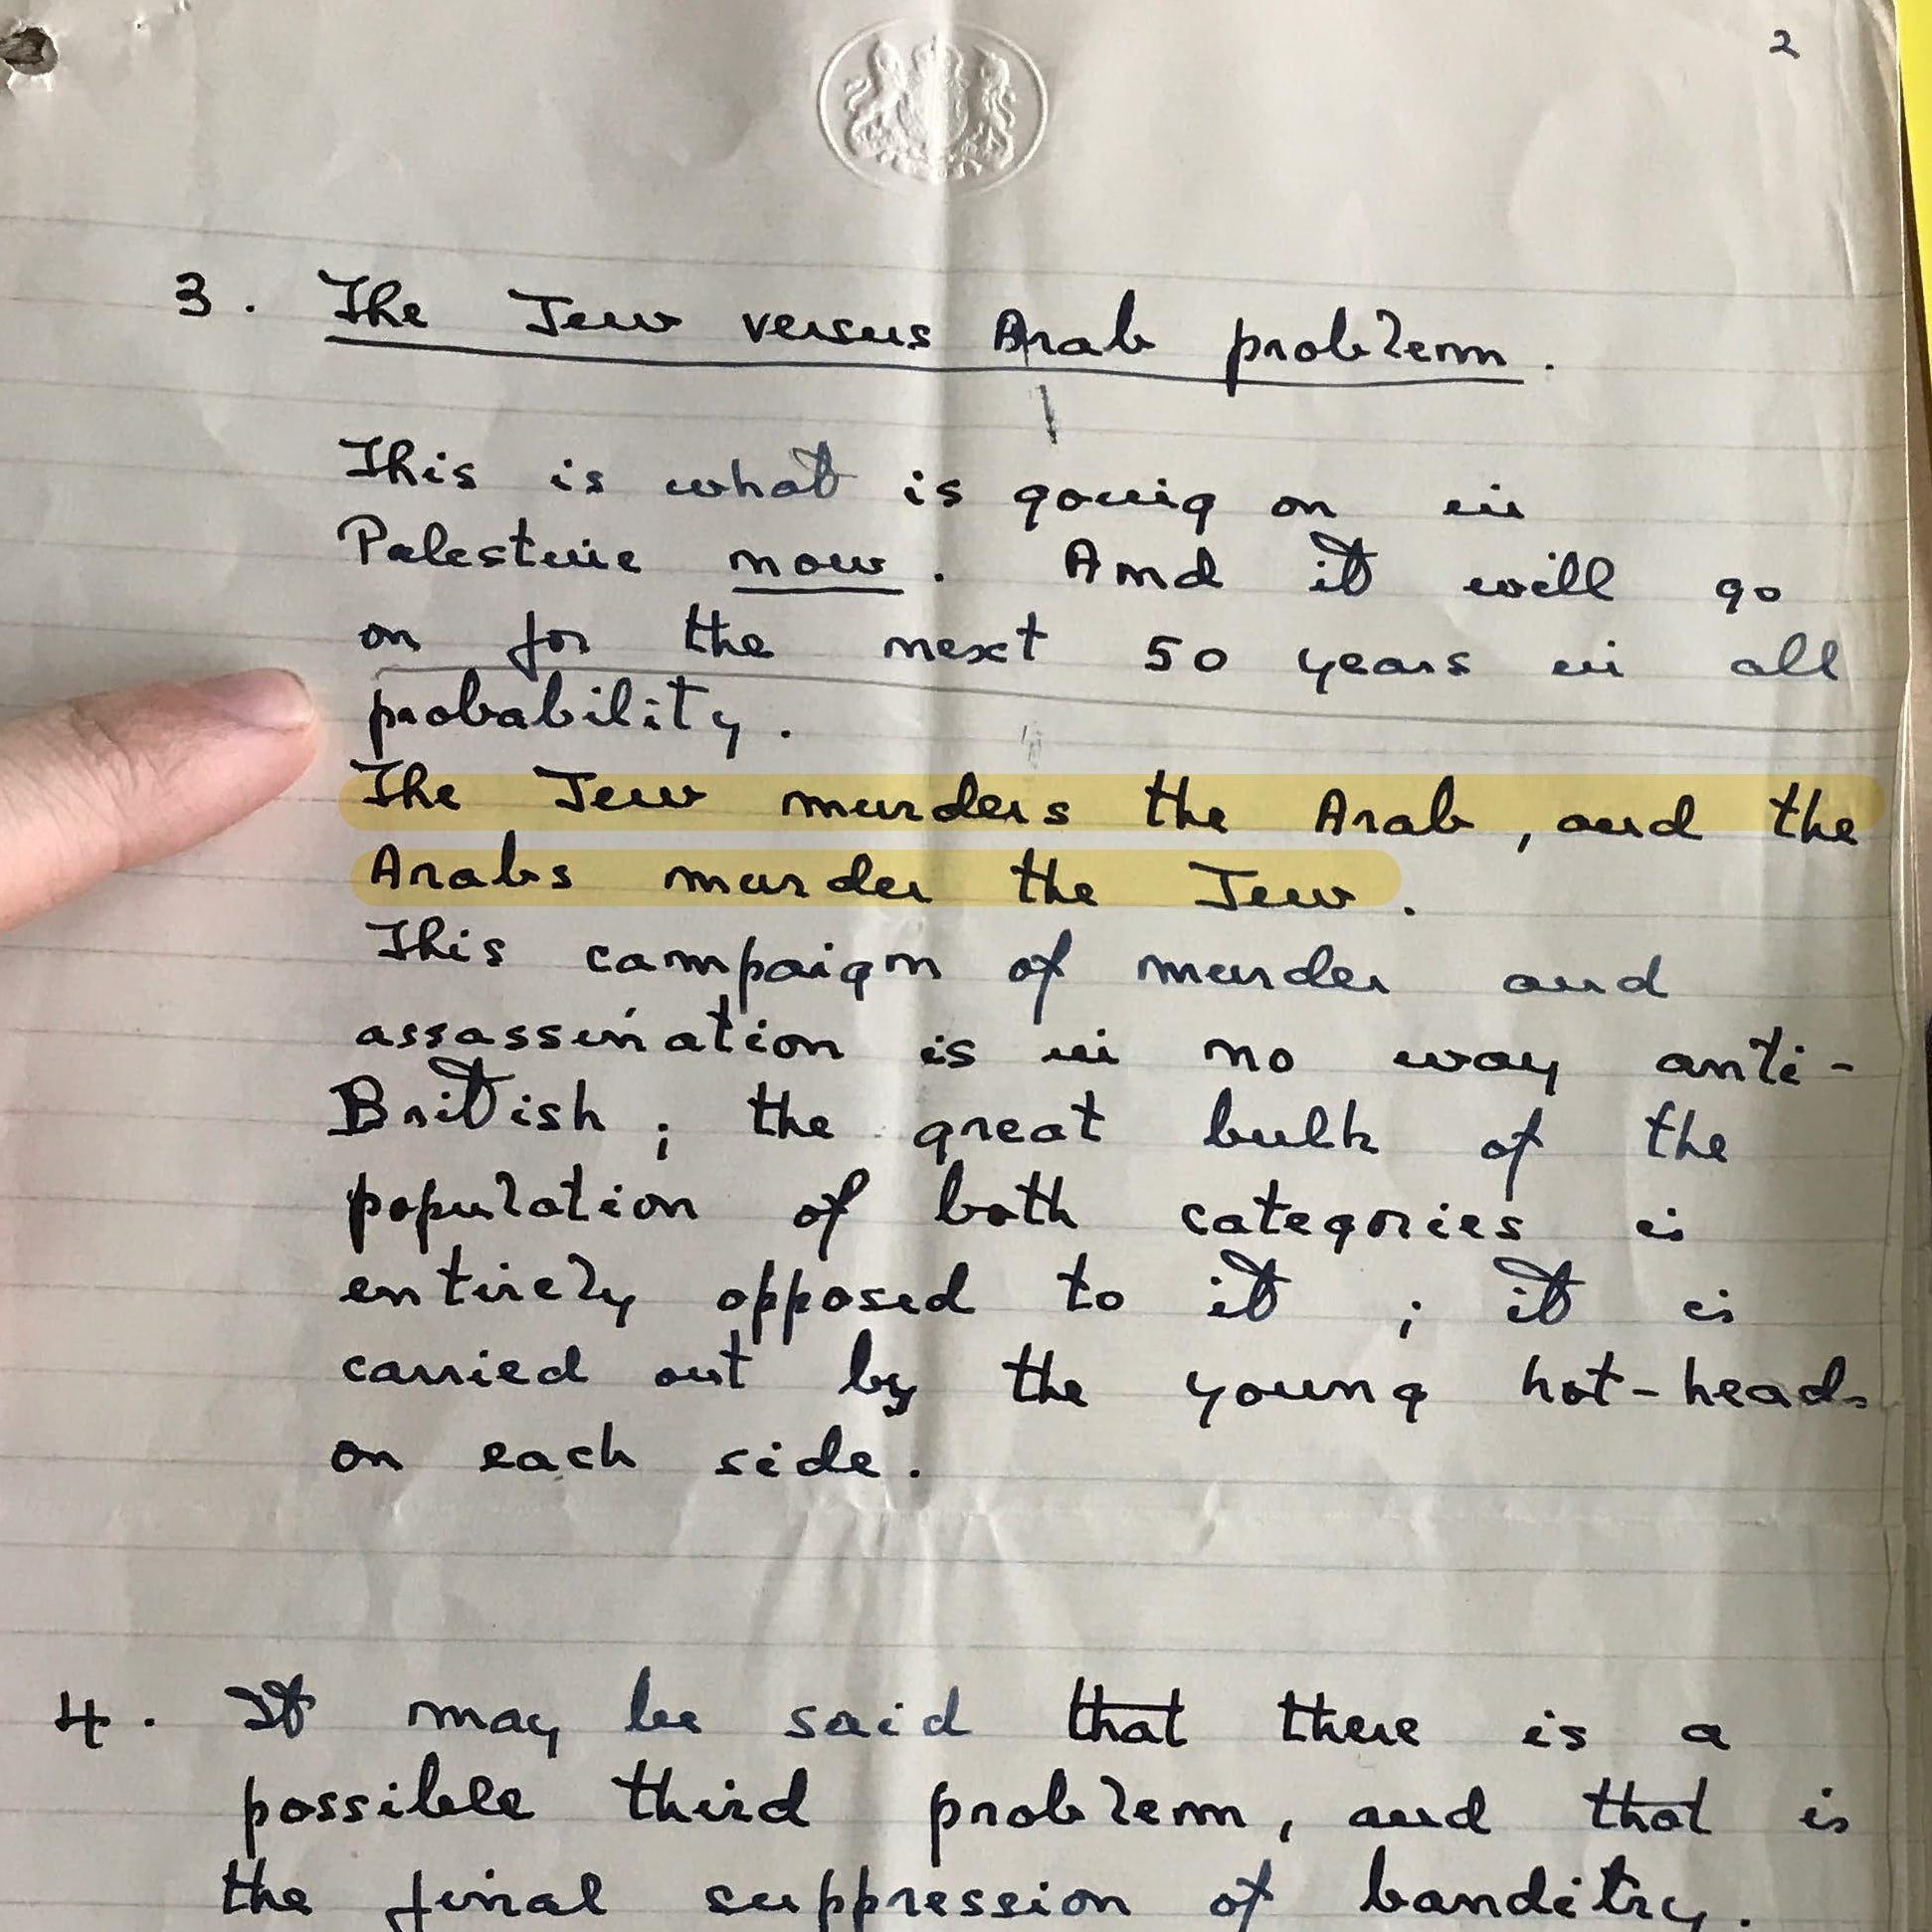 2
3. The Jew versus Arab problem.
This is what is going on in
Palestine now. And it will go
on for the next 50 years in all
probability.
The Jew murders the Arab, and the
Arabs murder the Jew.
This campaign of murder and
assassination is in no way anti-
British; the great bulk of the
population of both categories is
entirely opposed to it; it is
carried out by the young hot-heads
on each side.
4. It may be said that there is a
possible third problem, and that is
the final suppression of banditry.